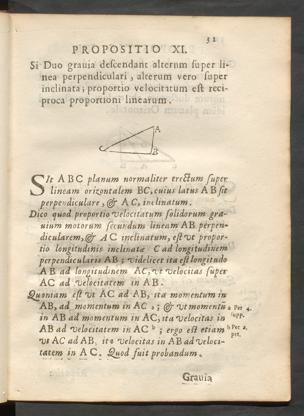 32
PROPOSITIO XI.
Si Duo grauia descendant alterum super li-
nea perpendiculari, alterum vero super
inclinata; proportio velocitatum est reci-
proca proportioni linearum.
A
C B
SIt ABC planum normaliter erectum super
lineam orizontalem BC, cuius latus AB sit
perpendiculare, & AC, inclinatum.
Dico quod proportio velocitatum solidorum gra-
uium motorum secundum lineam AB perpen-
dicularem, & AC inclinatum, est vt propor-
tio longitudinis inclinatæ C ad longitudinem
perpendicularis AB; videlicet ita est longitudo
AB ad longitudinem AC, vt velocitas super
AC ad velocitatem in AB.
Quoniam est vt AC ad AB, ita momentum in
AB, ad momentum in AC a; & vt momentum a Per 4.
in AB ad momentum in AC, ita velocitas in supp.
AB ad velocitatem in AC b; ergo est etiam b Per 2.
vt AC ad AB, ita velocitas in AB ad veloci- pet.
tatem in AC. Quod fuit probandum.
Grauia